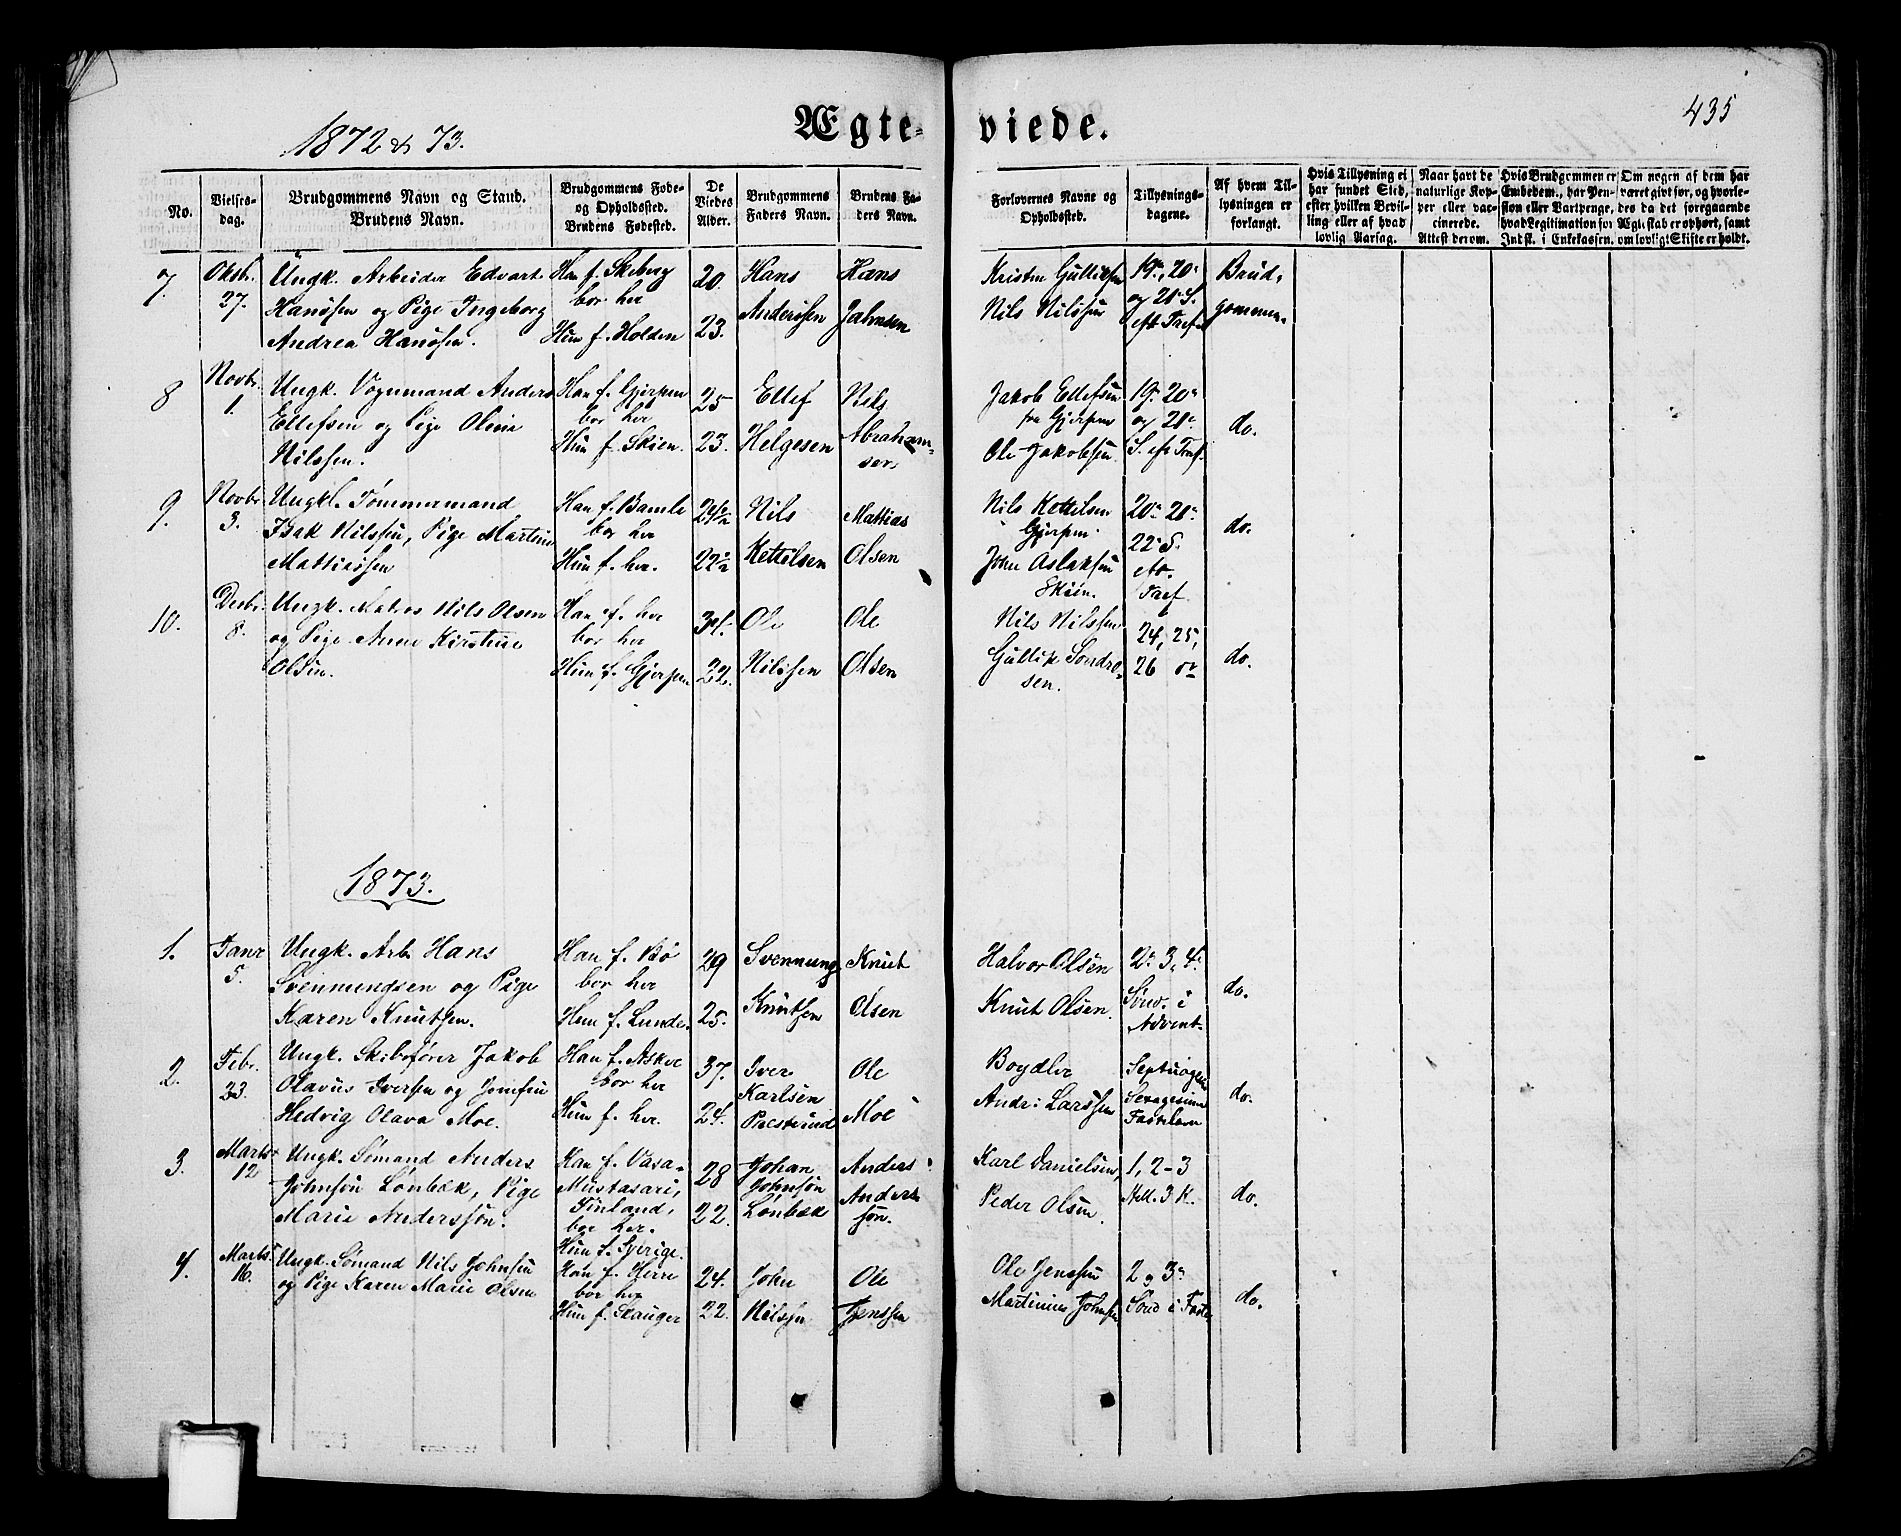 1872 & 73.
Ægteviede.
435
No.
Vielsesdag.
Brudgommens Navn og Stand.
Brudens Navn.
Brudgommens Føde-
og Opholdssted.
Brudens Fødested.
De
Viedes
Alder.
Brudgommens
Faders Navn.
Brudens Fa-
ders Navn.
Forlovernes Navne og
Opholdssted.
Tillysnings-
dagene.
Af hvem Til-
lysningen er
forlangt.
Hvis Tillysning ei
har fundet Sted,
efter hvilken Bevil-
ling eller af hvad
lovlig Aarsag.
Naar havt de
naturlige Kop-
per eller vac-
cinerede.
Attest derom.
Hvis Brudgommen er
Embedsm., har Pen-
sion eller Vartpenge,
hvad Legitimation for
Indsk. i Enkekassen.
Om nogen af dem har
været gift før, og hvorle-
des da det foregaaende
Ægteskab er ophørt, samt
om lovligt Skifte er holdt.
7. Oktbr. 27. Ungk. Arbeider Edvart
Hanssen og Pige Ingeborg
Andrea Hanssen.
Han f. Skiberg
bor her
Hun f. Holden
20.
23.
Hans
Anderssen
Hans
Jahnsen
Kristen Gulliksen
Nils Nilssen
19de, 20de
og 21de S.
eft Tref.
Brud-
gommen.
8 Novbr. 1. Ungk. Vognmand Anders
Ellefsen og Pige Oline
Nilssen.
Han f. Gjerpen
bor her
Hun f. Skien.
25
23.
Ellef
Helgesen
Nils
Abraham-
sen
Jakob Ellefsen
fra Gjerpen
Ole Jakobsen
19de 20de
og 21de
S. eft Tref.
do.
9. Novbr 3. Ungkl. Tømmermand
Isak Nilssen, Pige Martine
Mattiassen
Han f. Bamle
bor her
Hun f. her.
Nils
Kettilsen
Mattias
Olsen
Nils Kettilsen
Gjerpen
John Aslaksen
Skien.
20de 21de
22de S.
Tref.
do.
10. Desbr. 8. Ungk. Matros Nils Olsen
og Pige Anne Kirstine
Olsen.
Han f. her
bor her
Hun f. Gjerpen
34.
32.
Ole
Nilssen
Ole
Olsen
Nils Nilssen
Gullik Sondre-
sen.
24, 25,
26
do.
1873.
1. Janr 5. Ungk. Arb. Hans
Svennungsen og Pige
Karen Knutsen.
Han f. Bø
bor her
Hun f. Lunde.
29
25.
Svennung
Knutsen
Knut
Olsen
Halvor Olsen
Knut Olsen.
2de 3, 4de
Sønd. i
Advent.
do.
2. Febr. 23. Ungk. Skibsfører Jakob
Olavus Iverssen og Jomfru
Hedvig Olava Moe.
Han f. Askve
bor her
Hun f. her.
37.
24.
Iver
Karlsen
Ole
Moe
Boydler
Andr: Larssen
Septuages
Sexagesima
Fastelavn
do.
3. Marts 12 Ungk. Sømand Anders
Johnsøn Lønbæk, Pige
Marie Anderssøn.
Han f. Vasa-
Mustasari,
Finland,
bor her.
Hun f. Sverige.
28
22.
Johan
Johnsøn
Lønbæk
Anders
Anders-
søn.
Karl Danielsen,
Peder Olsen.
1, 2-3
Hell. 3 K.
do.
4. Marts 16. Ungk. Sømand Nils Johnsen
og Pige Karen Marie Olsen
Han f. Herre
bor her
Hun f. Slauger
24.
22.
John
Nilssen
Ole
Jenssen
Ole Jenssen
Martinius Johnsen
2 og 3de
Sønd i Faste
do.